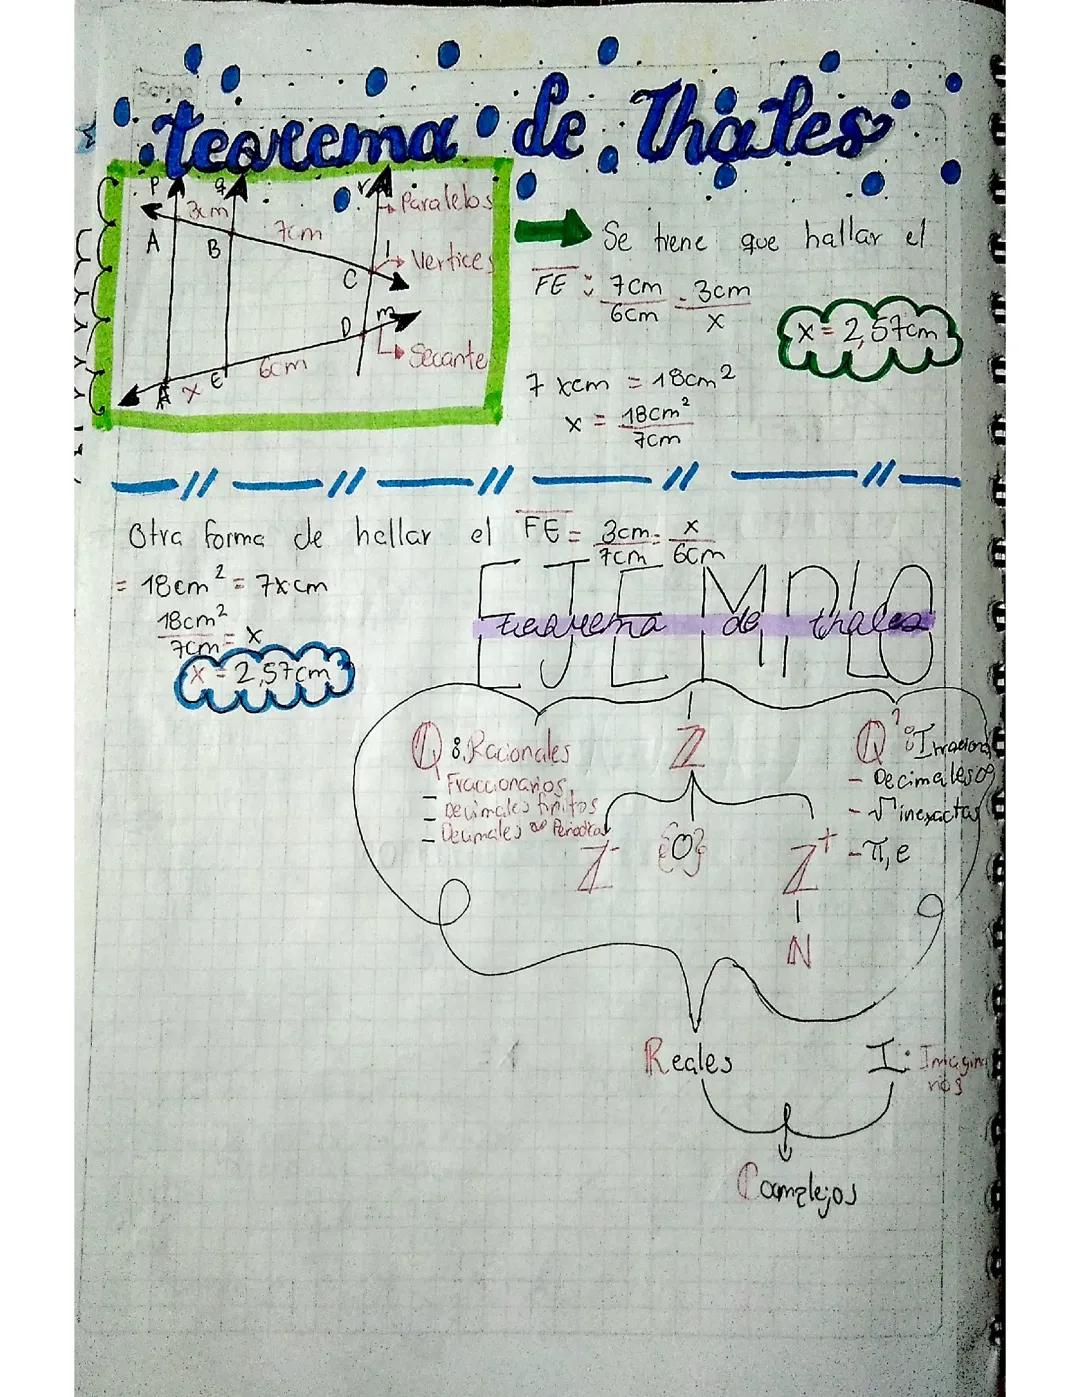 Scribe
teorema de Thales
P q r
3cm
→ Paralelas
A B 7cm
→ Vertices
C
D m
→ Secante
6cm
x E
Se tiene que hallar el
FE : 7cm/6cm = 3cm/x
x = 2,57cm
7 xcm = 18cm²
x = 18cm²/7cm
Otra forma de hallar el FE = 3cm/7cm = x/6cm
= 18cm² = 7xcm
18cm²/7cm = x
x = 2,57cm
EJEMPLO
teorema de thales
Q : Racionales
Fraccionarios
- Decimales finitos
- Decimales ∞ Periodica
Z
Z⁻ {0} Z⁺
N
Q' : Irraciona
- Decimales ∞
- √ inexactas
- π, e
Reales I: Imagina
rios
Complejos